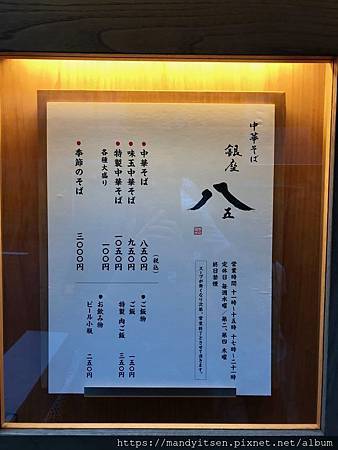 中華そば
銀座
八五
営業時間 十一時〜十五時 十七時〜二十一時
定休日 毎週水曜／第二、第四木曜
終日禁煙
スープが無くなり次第、営業終了とさせて頂きます。
(税込)
中華そば 八五〇円
味玉中華そば 九五〇円
特製中華そば 一〇五〇円
各種大盛り 一〇〇円
季節のそば 三〇〇〇円
ご飯物
ご飯 一五〇円
特製 肉ご飯 三五〇円
お飲み物
ビール小瓶 二五〇円
https://mandyitsen.pixnet.net/album